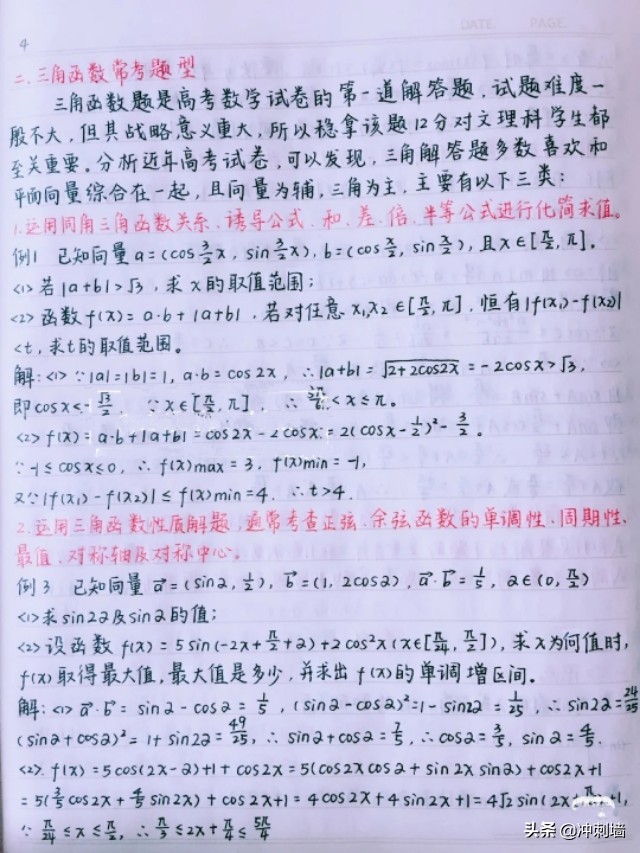 DATE PAGE
4
二.三角函数常考题型
三角函数题是高考数学试卷的第一道解答题,试题难度一
般不大,但其战略意义重大,所以稳拿该题12分对文理科学生都
至关重要。分析近年高考试卷,可以发现,三角解答题多数喜欢和
平面向量综合在一起,且向量为辅,三角为主,主要有以下三类:
1.运用同角三角函数关系、诱导公式、和、差、倍、半等公式进行化简求值。
例1 已知向量a=(cos3/2x, sin3/2x), b=(cosx/2, sinx/2), 且x∈[π/2,π],
<1>若|a+b|>√3, 求x的取值范围;
<2>函数f(x)=a·b+|a+b|, 若对任意x₁,x₂∈[π/2,π], 恒有|f(x₁)-f(x₂)|
<t,求t的取值范围。
解:<1>∵|a|=|b|=1, a·b=cos2x, ∴|a+b|=√2+2cos2x=-2cosx>√3,
即cosx<-√3/2. ∵x∈[π/2,π], ∴5π/6<x≤π.
<2>f(x)=a·b+|a+b|=cos2x-2cosx=2(cosx-1/2)²-3/2.
∵-1≤cosx≤0, ∴f(x)max=3, f(x)min=-1,
又∵|f(x₁)-f(x₂)|≤f(x)min=4, ∴t>4.
2.运用三角函数性质解题,通常考查正弦、余弦函数的单调性、周期性、
最值、对称轴及对称中心。
例3 已知向量a⃗=(sin2,1/2), b⃗=(1,2cos2), a⃗·b⃗=1/5, 2∈(0,π/2)
<1>求sin22及sin2的值;
<2>设函数f(x)=5sin(-2x+π/2+2)+2cos²x(x∈[π/24,π/2]), 求x为何值时,
f(x)取得最大值,最大值是多少,并求出f(x)的单调增区间。
解:<1>a⃗·b⃗=sin2-cos2=1/5, (sin2-cos2)²=1-sin22=1/25, ∴sin22=24/25
(sin2+cos2)²=1+sin22=49/25, ∴sin2+cos2=7/5, ∴cos2=3/5, sin2=4/5.
<2>.f(x)=5cos(2x-2)+1+cos2x=5(cos2xcos2+sin2xsin2)+cos2x+1
=5(3/5cos2x+4/5sin2x)+cos2x+1=4cos2x+4sin2x+1=4√2sin(2x+π/4)+1,
∵π/24≤x≤π/2, ∴π/3≤2x+π/4≤5π/4
头条 @冲刺墙